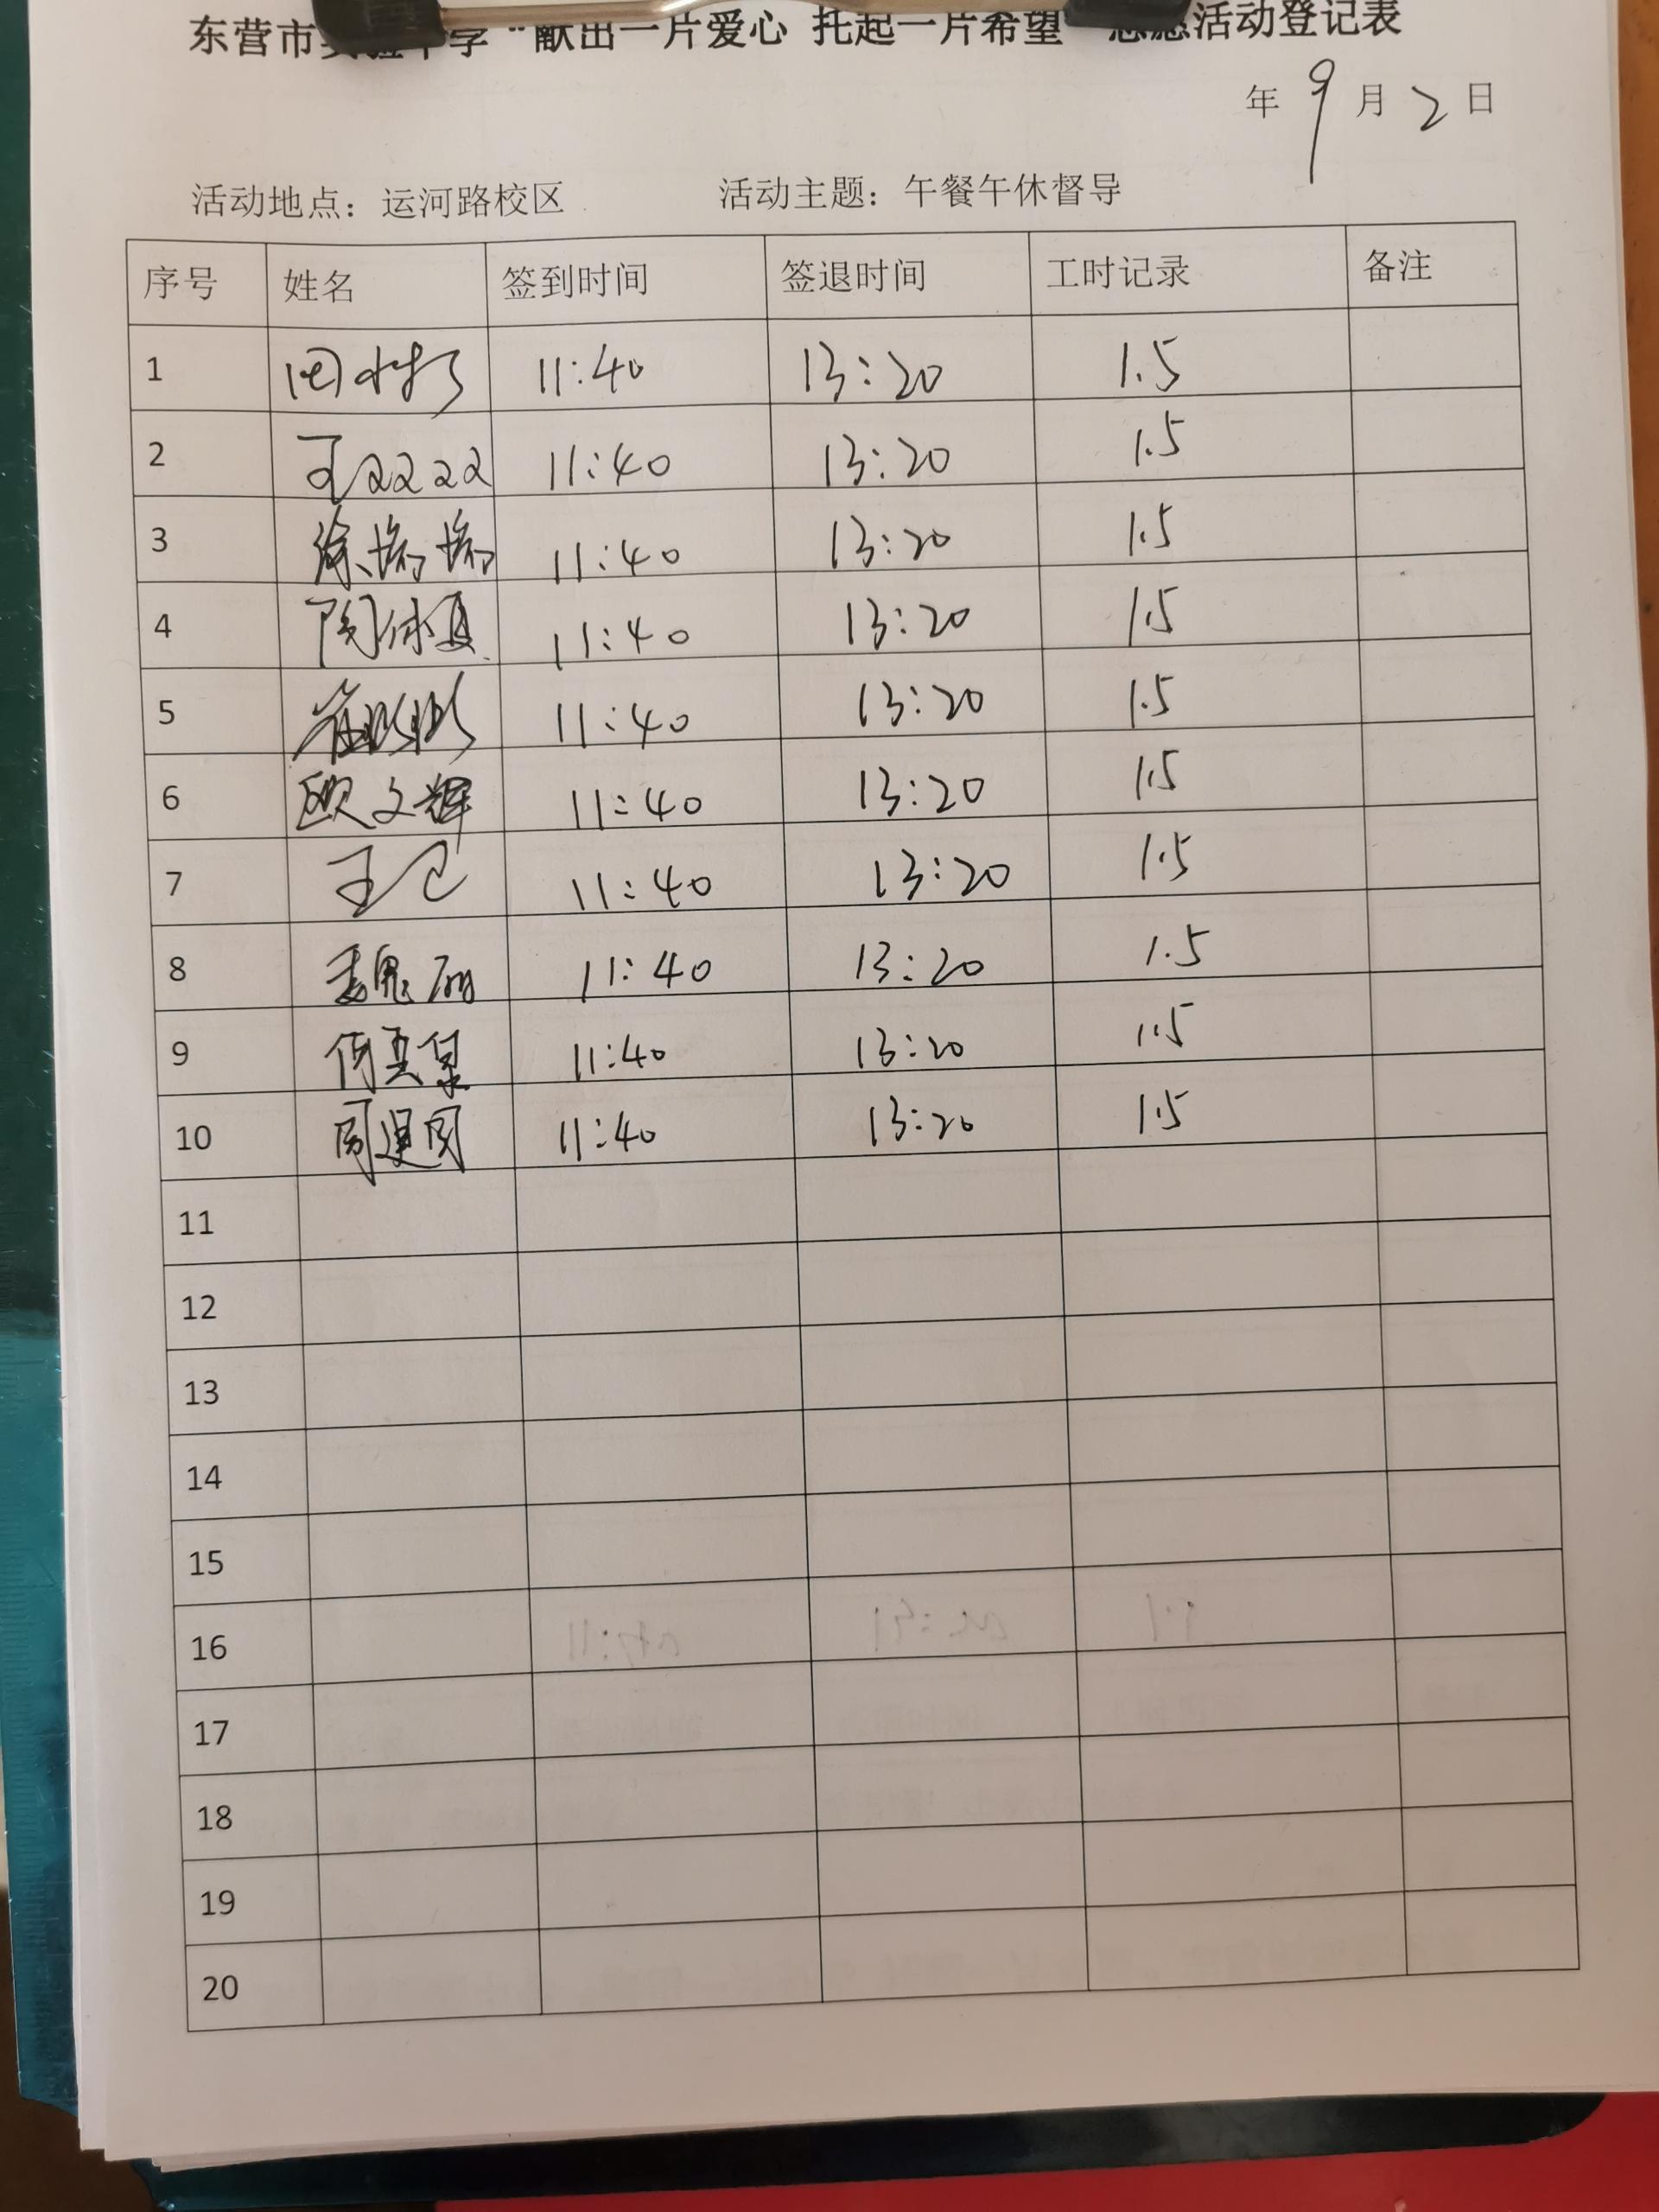 东营市实验中学“献出一片爱心 托起一片希望”志愿活动登记表
年 9 月 2 日
活动地点：运河路校区 活动主题：午餐午休督导
序号 姓名 签到时间 签退时间 工时记录 备注
1 11:40 13:20 1.5
2 王 11:40 13:20 1.5
3 徐瑞瑞 11:40 13:20 1.5
4 11:40 13:20 1.5
5 崔 11:40 13:20 1.5
6 欧文辉 11:40 13:20 1.5
7 王 11:40 13:20 1.5
8 魏丽 11:40 13:20 1.5
9 11:40 13:20 1.5
10 11:40 13:20 1.5
11
12
13
14
15
16
17
18
19
20